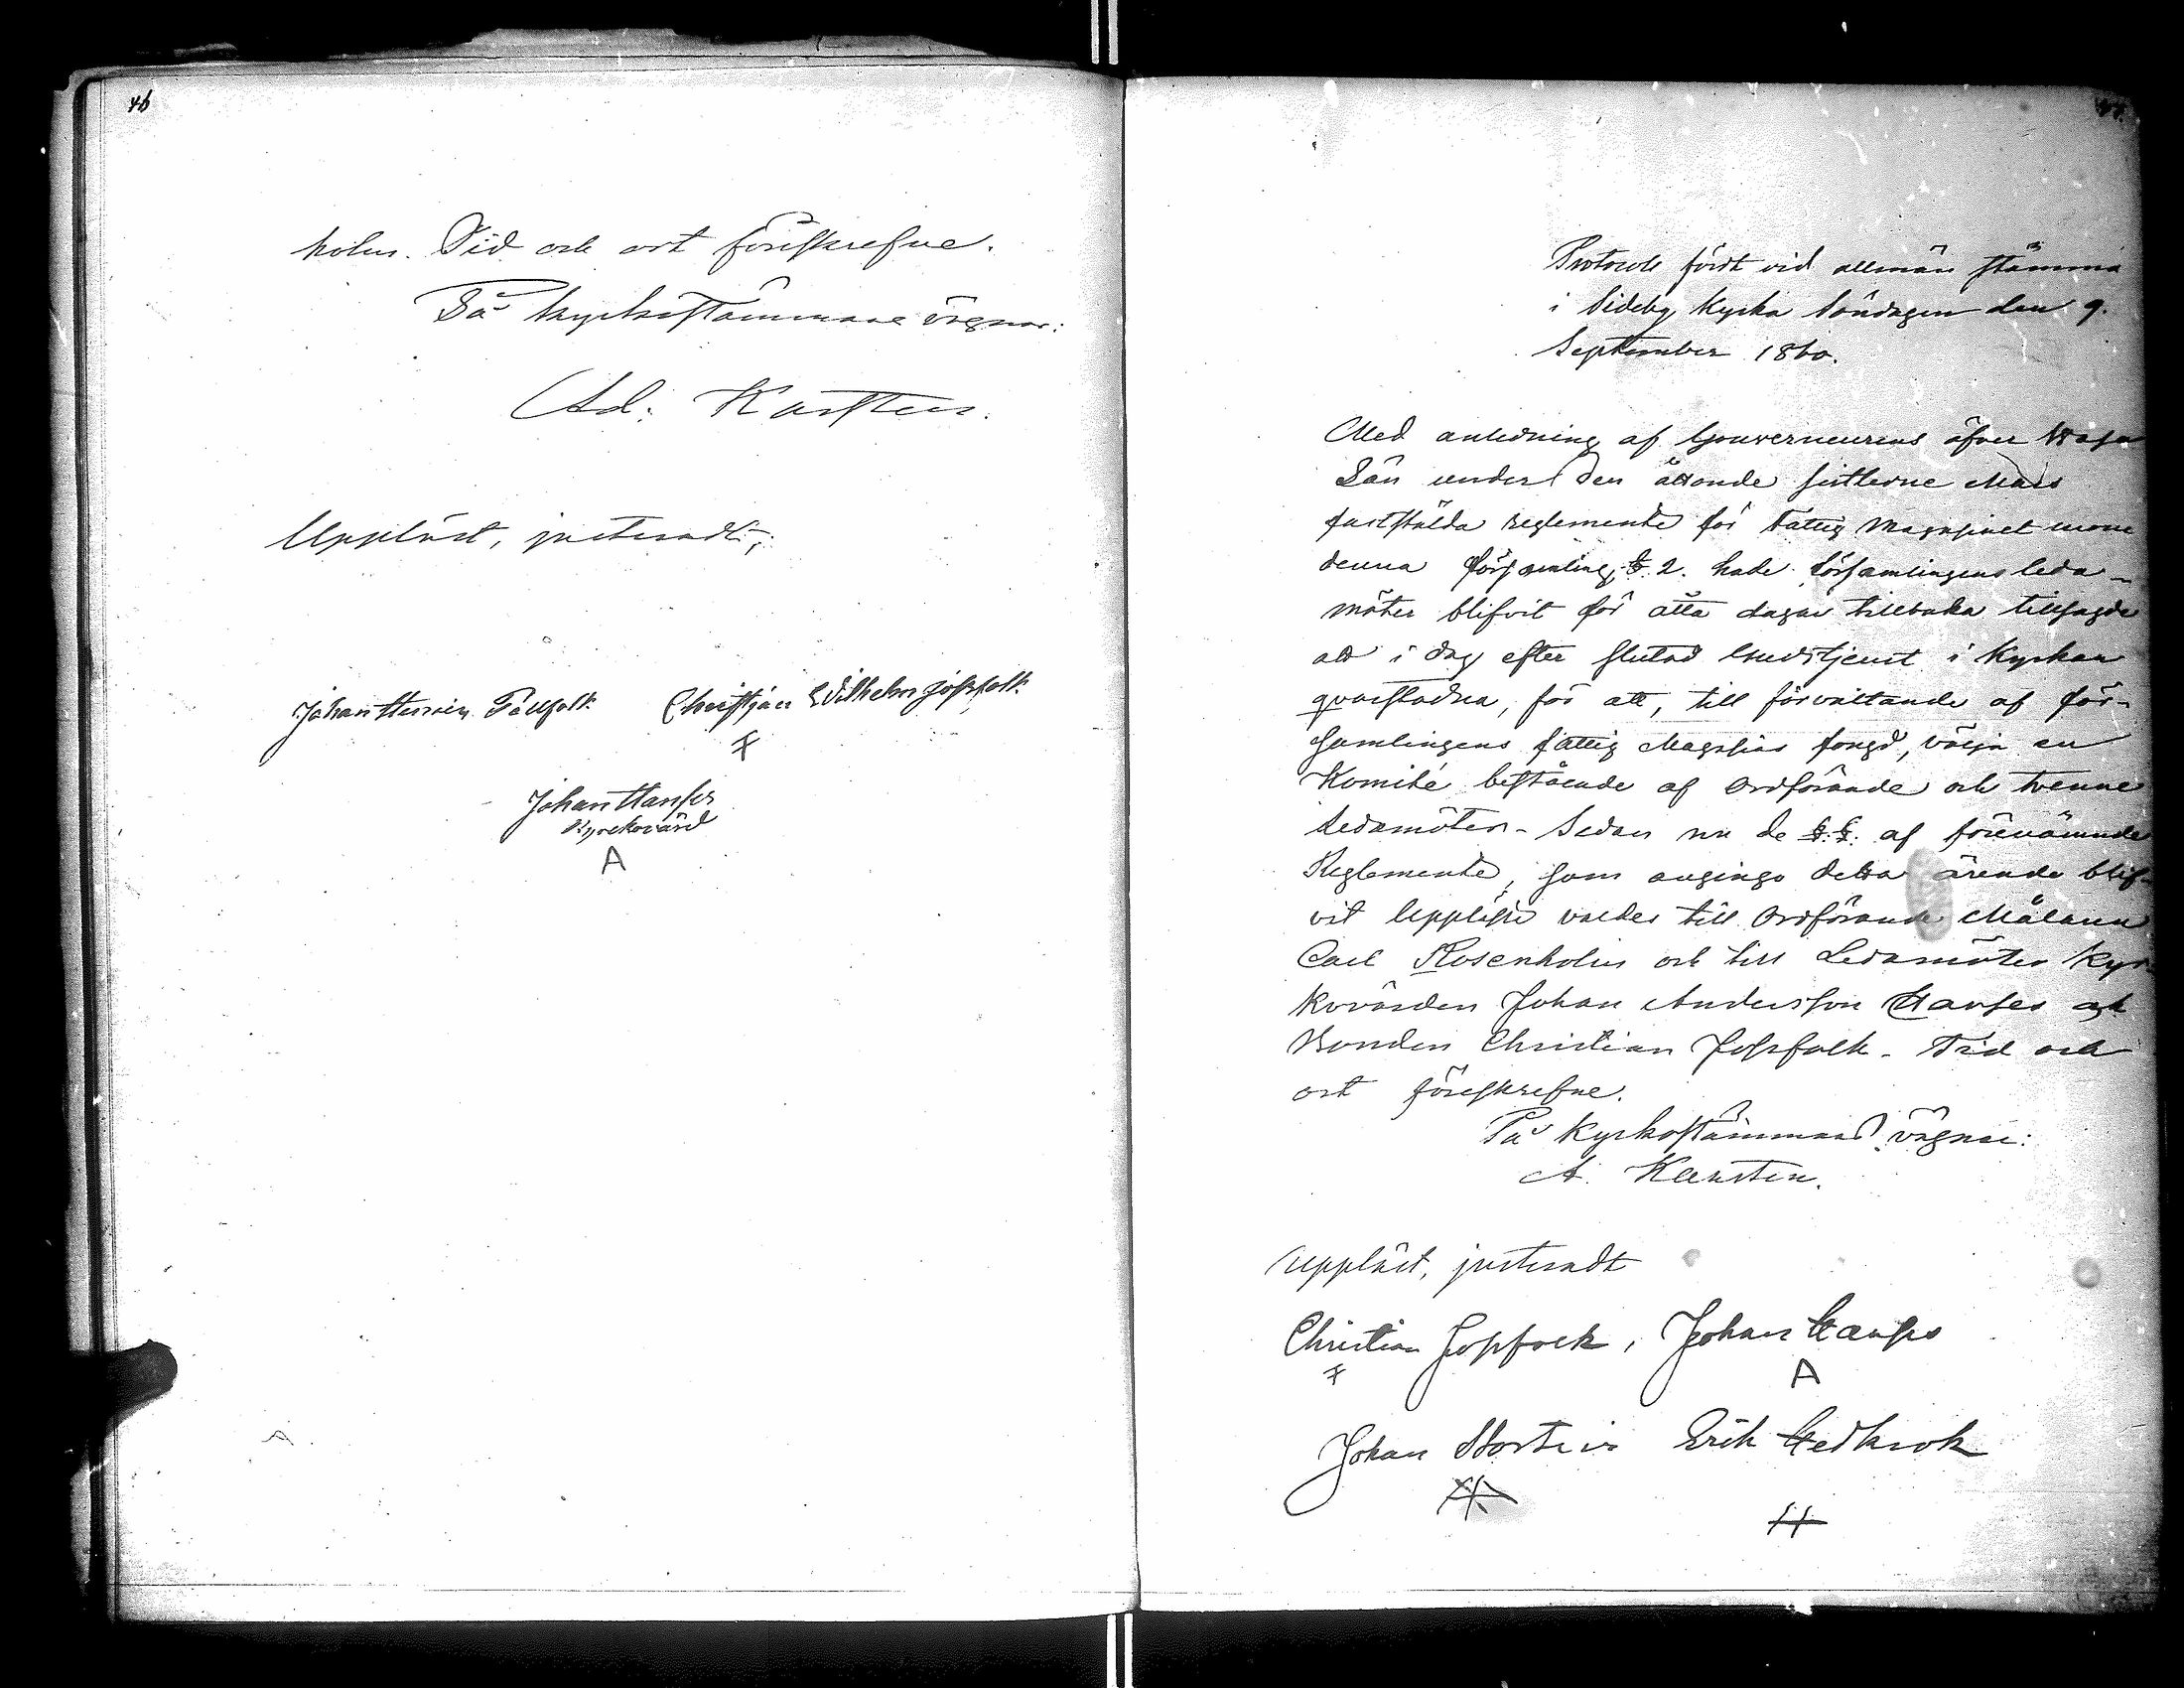 46
holm. Tid och ort föreskrefne.
På kyrkostämmans vägnar:
Ad: Karsten.
Uppläst, justeradt;
Johan Henric Tällfolk Christjan Wilhelm Jossfolk
Johan Hanses
Kyrckovärd
A
47.
Protocoll fördt vid allmän stämma
i Sideby Kyrka Söndagen den 9.
September 1860.
Med anledning af Gouverneurens öfver Wasa
Län under den åttonde sistledne Mars
fastställda reglemente för Fattig Magasinet inom
denna församling, §. 2. hade församlingens leda-
möter blifvit för åtta dagar tillbaka tillsagde
att i dag efter slutad Gudstjenst i Kyrkan
qvarstadna, för att, till förvaltande af för-
samlingens fattig Magasins fongd, välja en
Komité bestående af Ordförande och tvenne
Ledamöter. Sedan nu de §.§. af förenämnde
Reglemente, som angingo detta ärende blif-
vit Uppläste valdes till Ordförande Målaren
Carl Rosenholm och till Ledamöter Kyr-
kovärden Johan Andersson Hanses och
Bonden Christian Jossfolk. Tid och
ort föreskrefne.
På Kyrkostämmans vägnar:
A. Karsten.
Uppläst, justeradt
Christian Jossfolk, Johan Hanses
A
Johan Storteir Erik Gedkrok